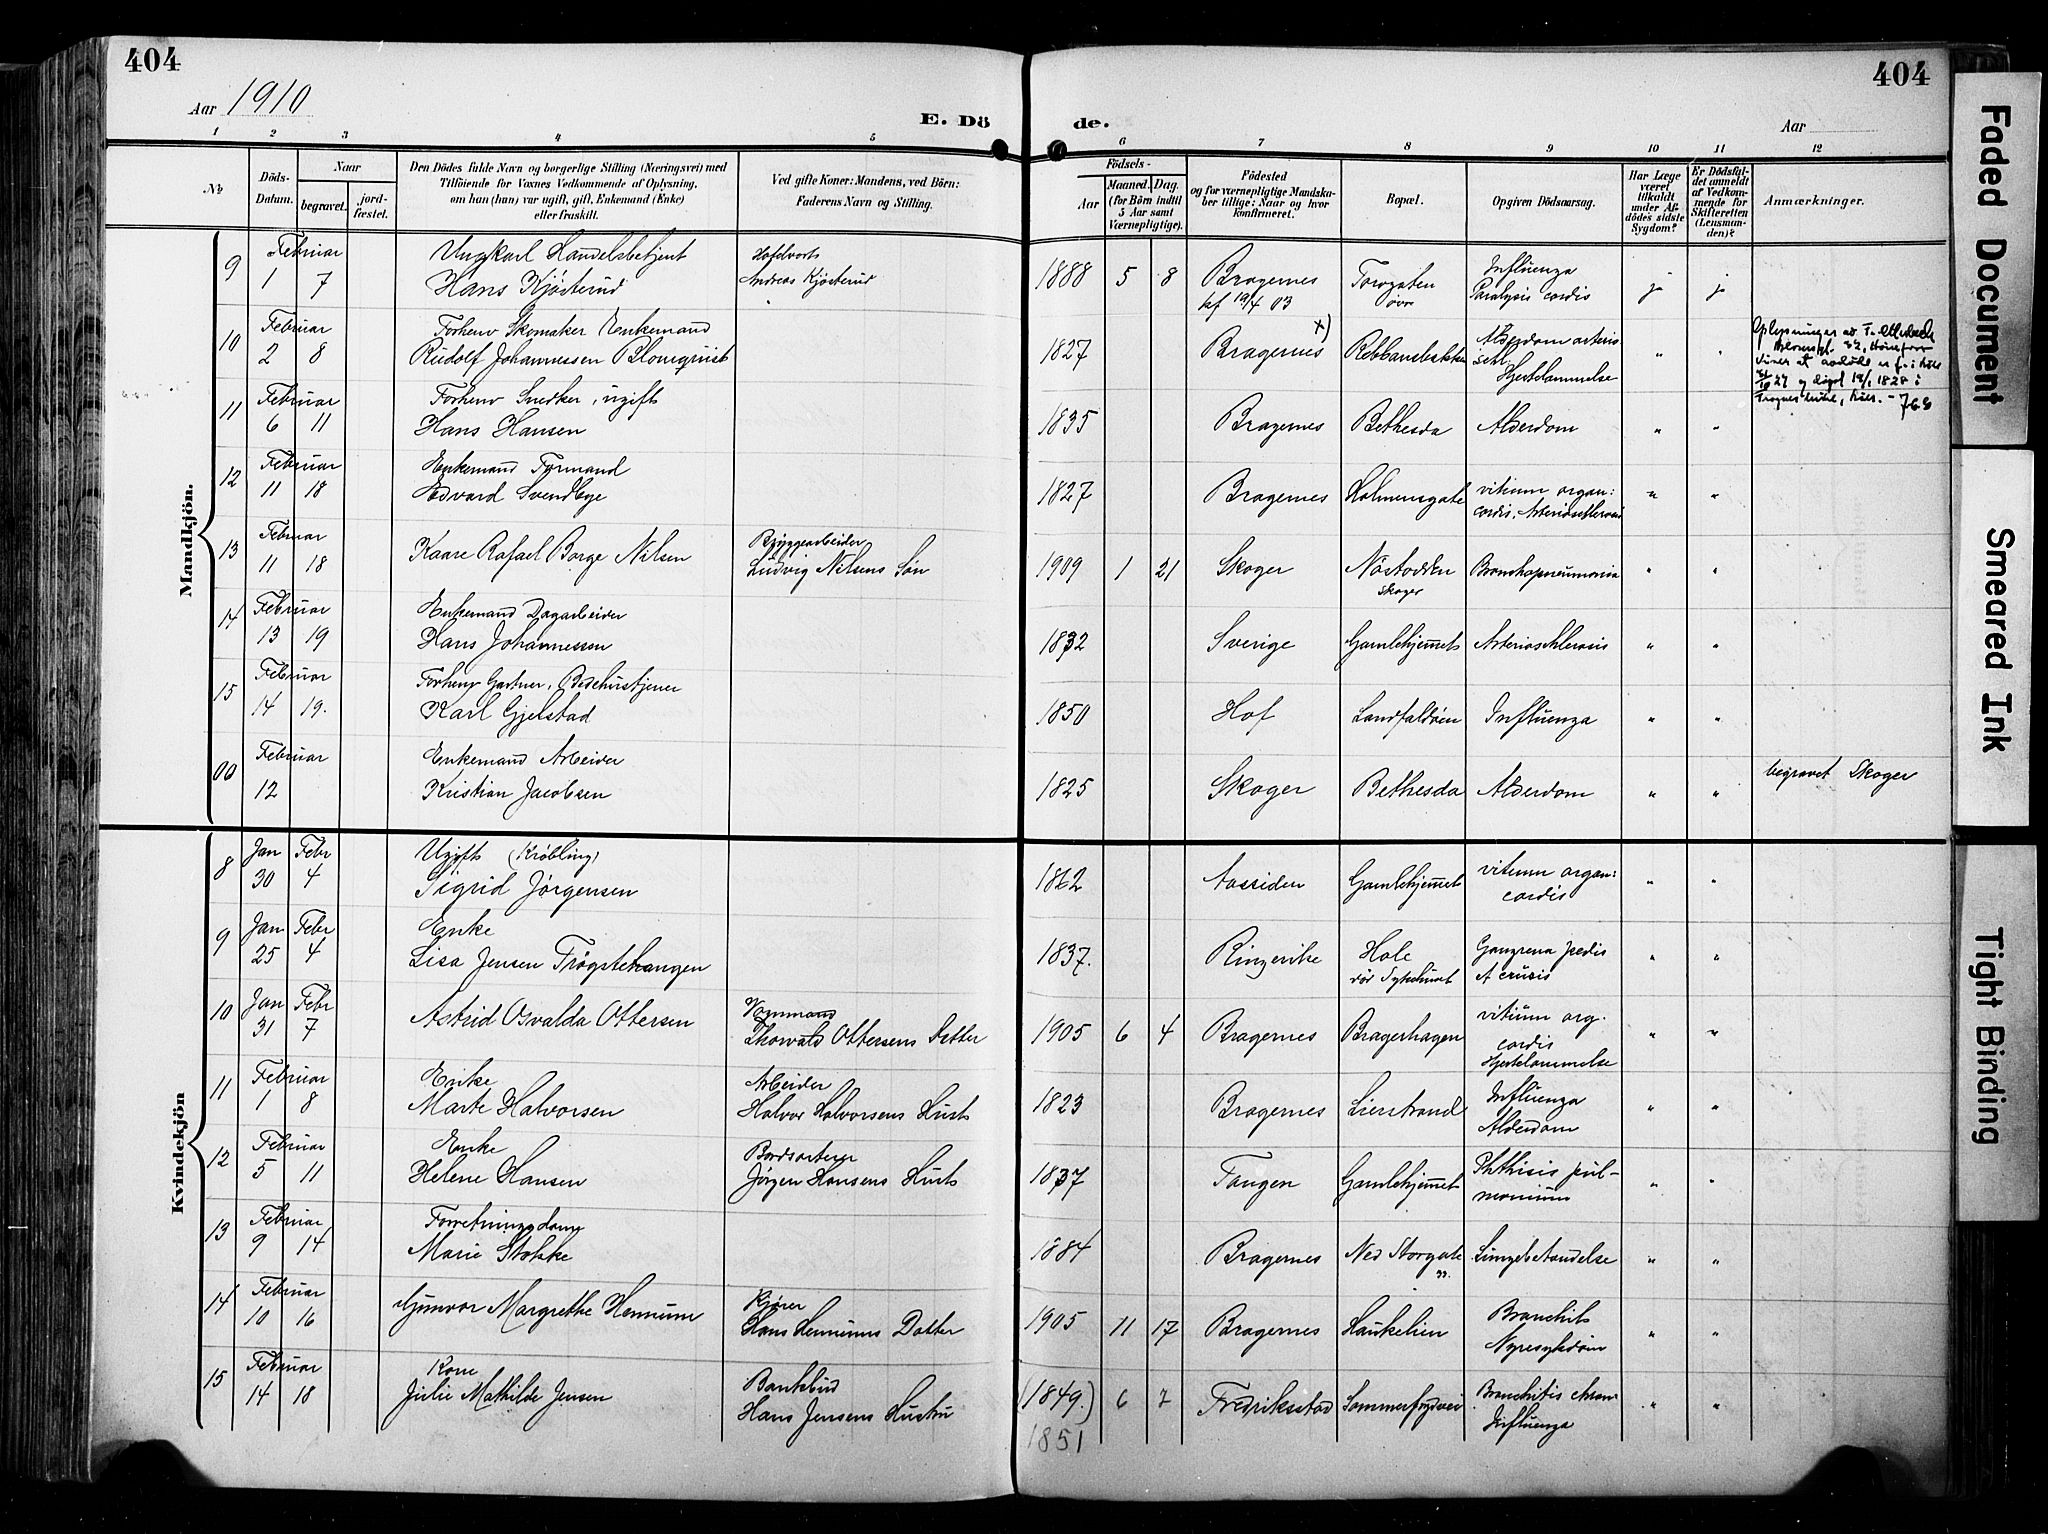 404
404
Aar 1910
E. Dö
de.
Aar
1 2 3 4 5 6 7 8 9 10 11 12
No
Döds-
Datum.
Naar
begravet.
jord-
fæstet.
Den Dödes fulde Navn og borgerlige Stilling (Næringsvei) med
Tilföiende for Voxnes Vedkommende af Oplysning,
om han (hun) var ugift, gift, Enkemand (Enke)
eller fraskilt.
Ved gifte Koner: Mandens, ved Börn:
Faderens Navn og Stilling.
Födsels-
Aar
Maaned. Dag.
(for Börn indtil
5 Aar samt
Værnepligtige).
Födested
og for værnepligtige Mandska-
ber tillige: Naar og hvor
konfirmeret.
Bopæl.
Opgiven Dödsaarsag.
Har Læge
været
tilkaldt
under Af-
dödes sidste
Sygdom?
Er Dödsfal-
det anmeldt
af Vedkom-
mende for
Skifteretten
(Lensman-
den)?
Anmærkninger.
Mandkjön.
9 Februar 1 7 Ungkarl Handelsbetjent
Hans Kjøsterud
Andreas Kjøsterud
1888 5 8 Bragernes
kf 19/4 03
Torvgaten
øvre
Influenza
Paralysis cordis
ja ja
10 Februar 2 8 Forhenv Skomaker Enkemand
Rudolf Johannessen Blomquist
1827 Bragernes x)
Alderdom
Hjertelammelse
" "
11 Februar 6 11 Forhenv Snedker, ugift
Hans Hansen
1835 Bragernes Bethesda Alderdom " "
12 Februar 11 18 Enkemand Formand
Edvard Svendbye
1827 Bragernes Holmensgate vitium organ:
cordis, Arteriosclerosis
" "
13 Februar 11 18 Kaare Rafael Borge Nilsen
Bryggearbeider
Ludvig Nilsens Søn
1909 1 21 Skoger Nøstodden
Skoger
Bronchopneumonia " "
14 Februar 13 19 Enkemand Dagarbeider
Hans Johannessen
1832 Sverige Gamlehjemmet Arteriosklerosis " "
15 Februar 14 19. Forhenv Gartner, Bedehustjener
Karl Gjelstad
1850 Hof Landfaldøen Influenza " "
00 Februar 12 Enkemand Arbeider
Kristian Jacobsen
1825 Skoger Bethesda Alderdom " " begravet Skoger
Kvindekjön
8 Jan 30 Febr 4 Ugift (Krøbling)
Sigrid Jørgensen
1862 Aassiden Gamlehjemmet vitium organ:
cordis
" "
9 Jan 25 Febr 4 Enke
Lisa Jensen Trøgstehaugen
1837. Ringerike Hole
Gangrena pedis
" "
10 Jan 31 Febr 7 Astrid Osvalda Ottersen
Thorvald Ottersens Datter
1905 6 4 Bragernes Bragerhagen vitium org.
cordis
Hjertelammelse
" "
11 Februar 1 8 Enke
Marte Halvorsen
Arbeider
Halvor Halvorsens Hust
1823 Bragernes Lierstrand Influenza
Alderdom
" "
12 Februar 5 11 Enke
Helene Hansen
Bordsorterer
Jørgen Hansens Hust
1837 Tangen Gamlehjemmet Phthisis pul-
monum
" "
13 Februar 9 14 Forretningsdame
Marie Stokke
1884 Bragernes Ned Storgate
Lungebetændelse " "
14 Februar 10 16 Gunvor Margrethe Hennum
Kjører
Hans Hennums Datter
1905 11 17 Bragernes Haukelien Bronchit
Nyresygdom
" "
15 Februar 14 18 Kone
Julie Mathilde Jensen
Bankbud
Hans Jensens Hustru
(1849.) 6 7 Fredriksstad Sommerfrydvei Bronchitis chron
Influenza
" "
1851
Faded Document
Smeared Ink
Tight Binding